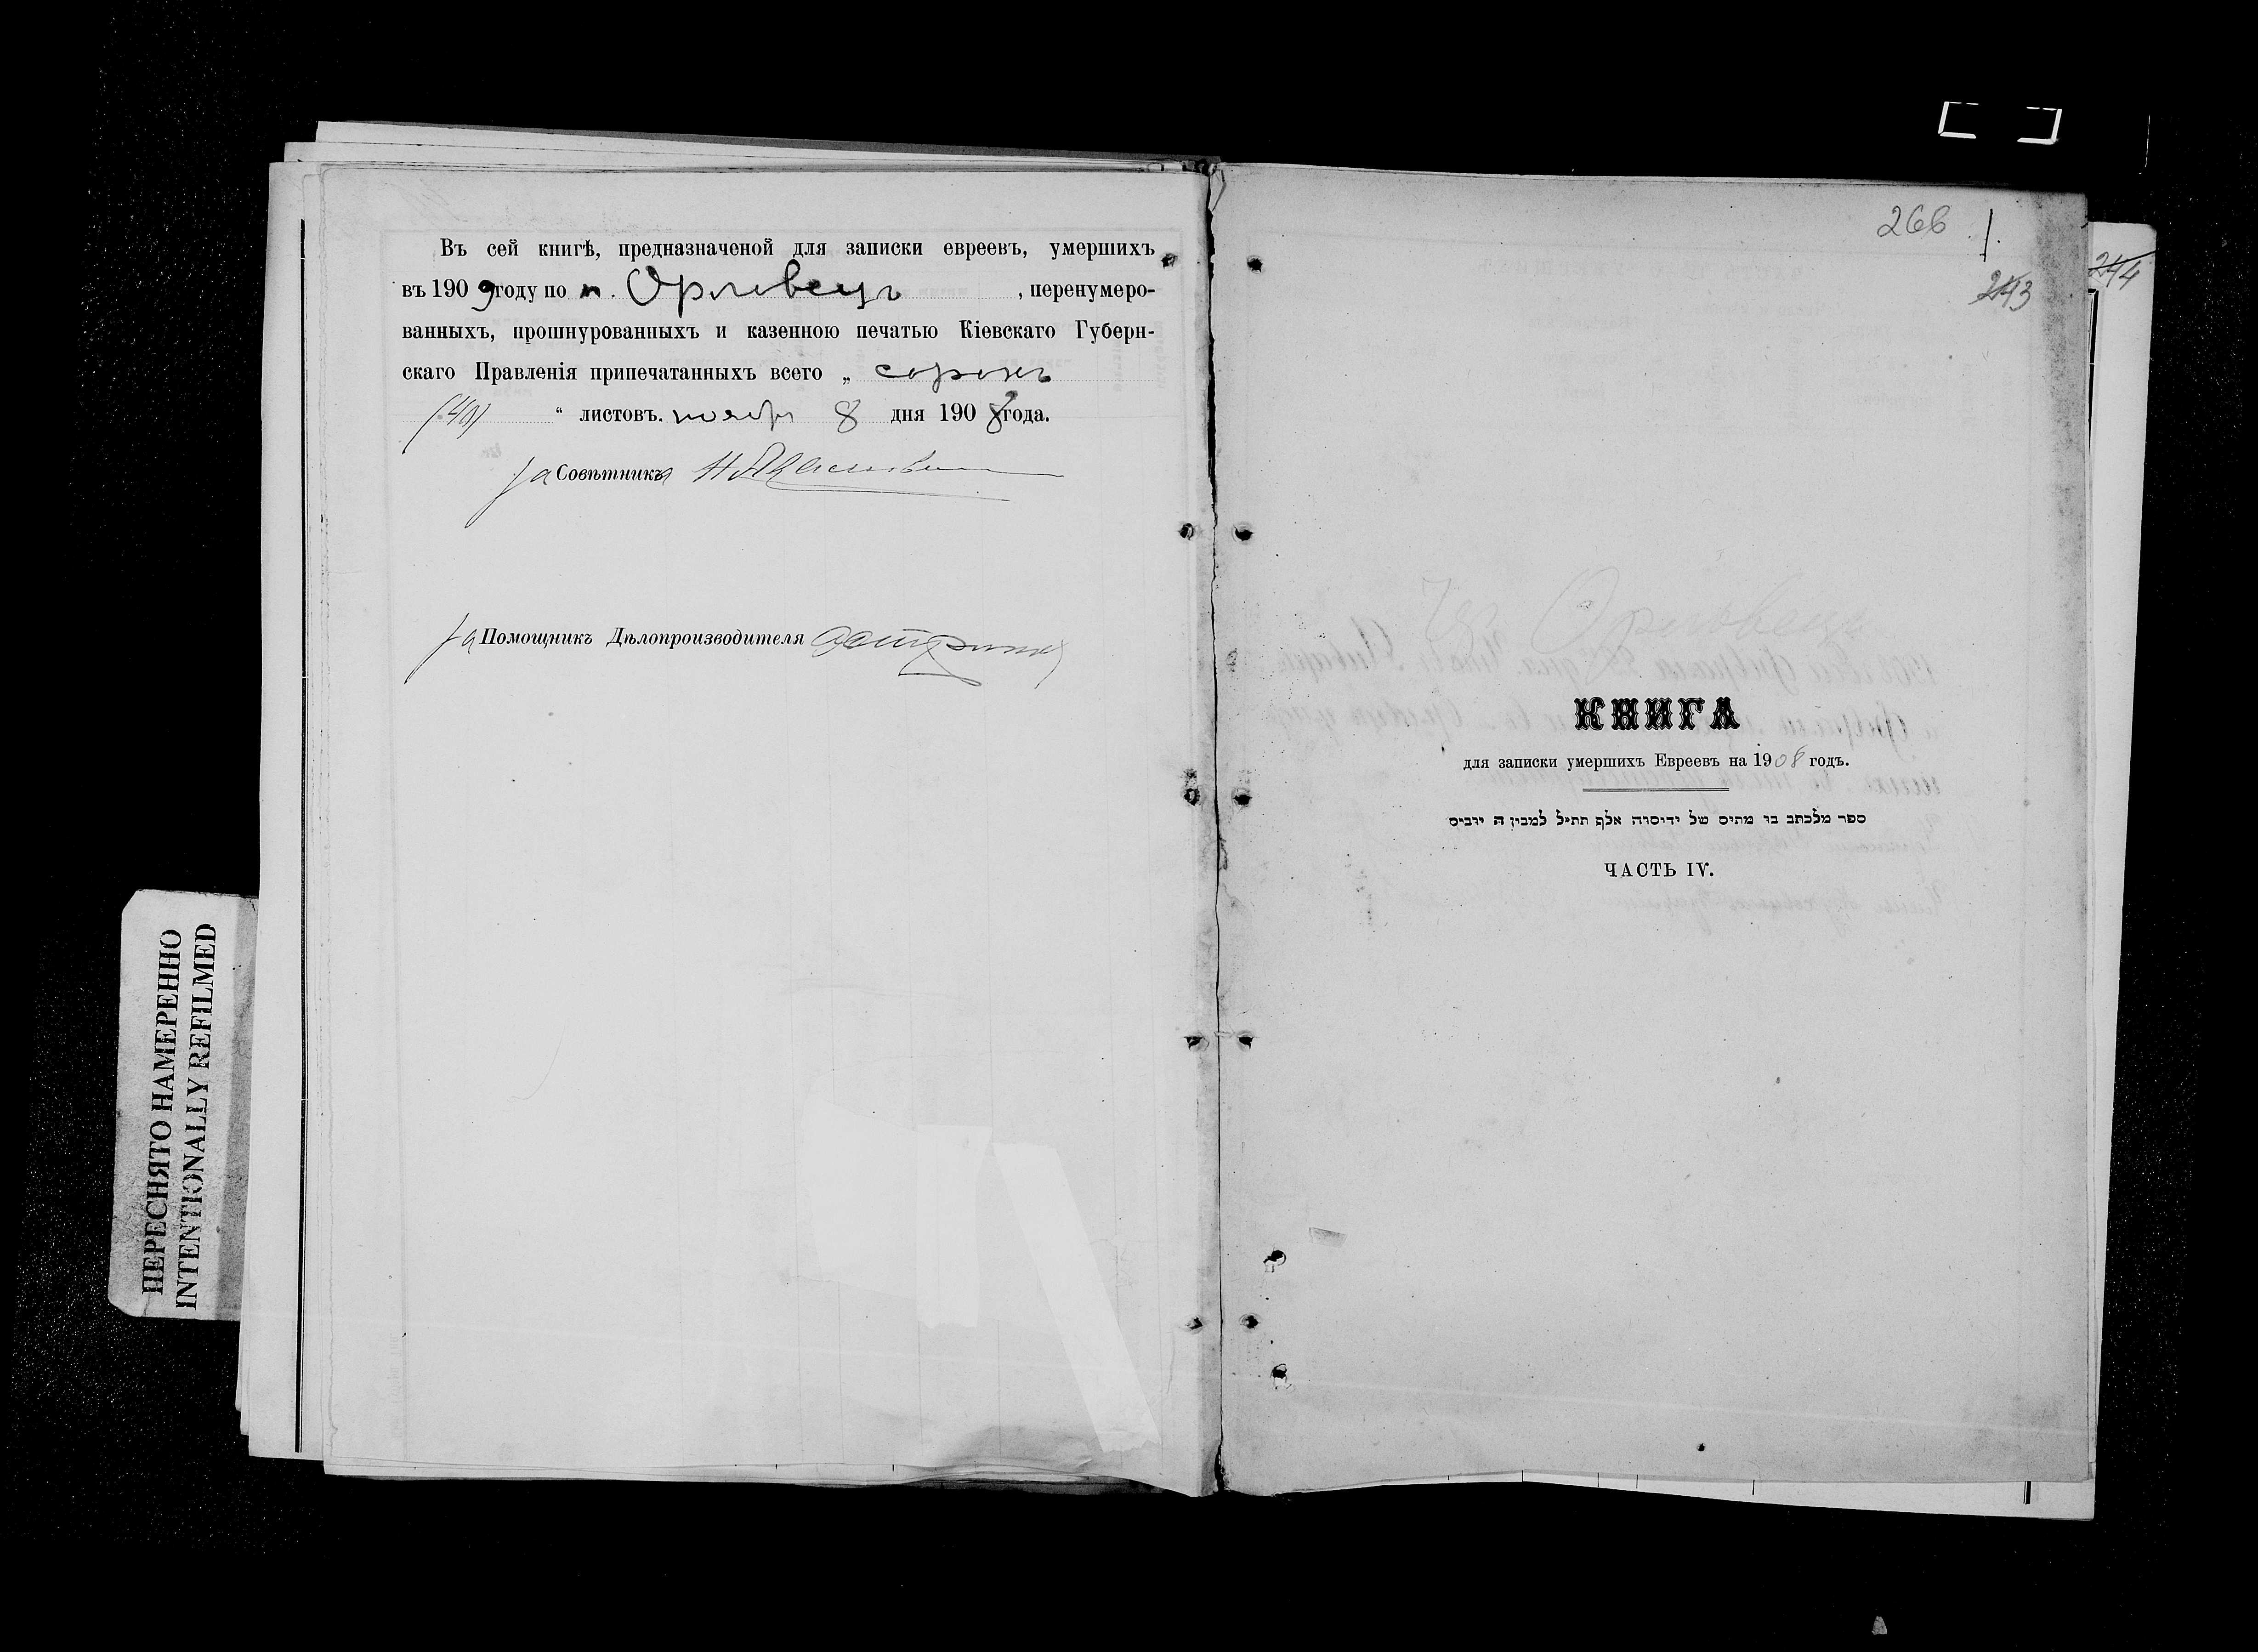 Въ сей книгѣ, предназначеной для записки евреевъ, умершихъ
въ 1909 году по м. Орловецъ, перенумеро-
ванныхъ, прошнурованныхъ и казенною печатью Кіевскаго Губерн-
скаго Правленія припечатанныхъ всего „ сорокъ
(40) “ листовъ. ноябр 8 дня 1908 года.
За Совѣтника
За Помощникъ Дѣлопроизводителя
ПЕРЕСНЯТО НАМЕРЕННО
INTENTIONALLY REFILMED
266 1.
243
244
Орловецъ
КНИГА
для записки умершихъ Евреевъ на 1908 годъ.
ספר מלכתב בו מתים של ידיסוה אלף תתי״ל למבין ה יוביס
ЧАСТЬ IV.